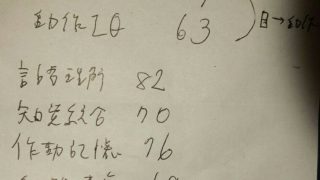 動作IQ 63 目→動作
言語理解 82
知覚統合 70
作動記憶 76